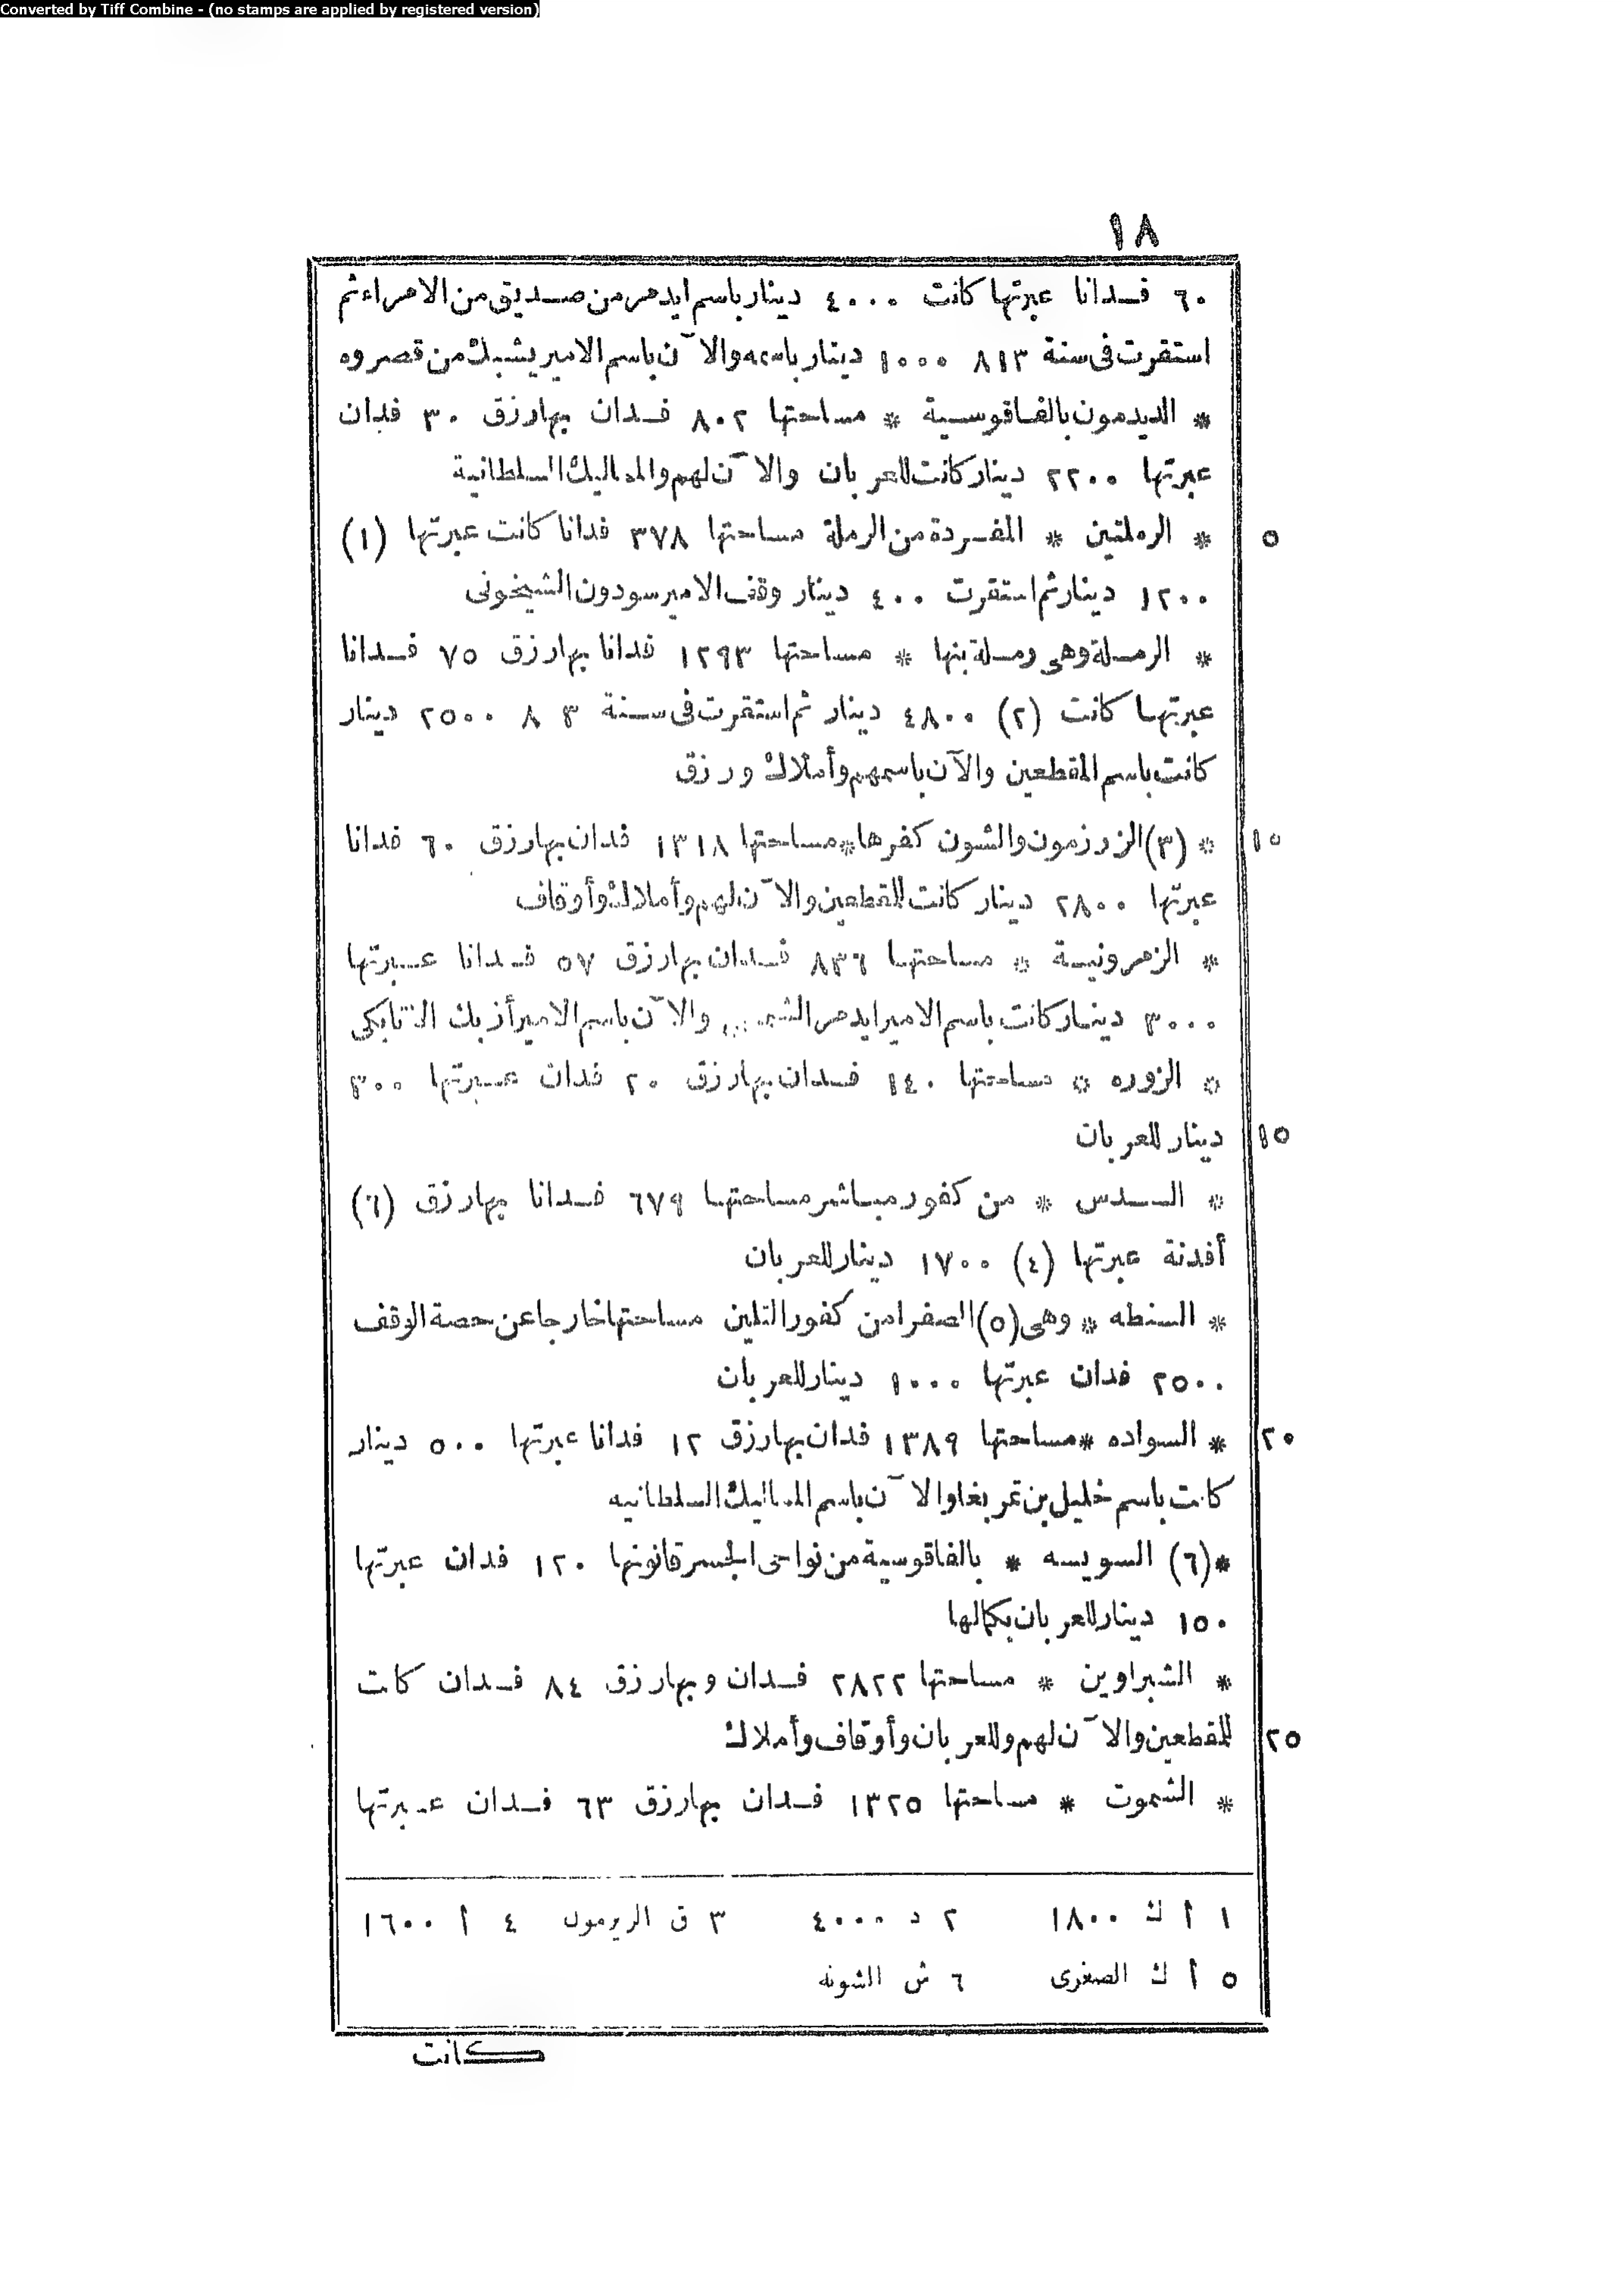 Converted by Tiff Combine - (no stamps are applied by registered version)
١٨
٦٠ فدانا عبرتها كانت ٤٠٠٠ دينار باسم ايدمر من صديق من الامراء ثم
استقرت فى سنة ٨١٣ ١٠٠٠ دينار باسمه والآن باسم الامير يشبك من قصروه
* الديدمون بالفاقوسية * مساحتها ٨٠٢ فدان بها رزق ٣٠ فدان
عبرتها ٢٢٠٠ دينار كانت للعربان والآن لهم والمماليك السلطانية
٥ * الرملتين * المفردة من الرملة مساحتها ٣٧٨ فدانا كانت عبرتها (١)
١٢٠٠ دينار ثم استقرت ٤٠٠ دينار وقف الامير سودون الشيخونى
* الرملة وهى رملة بنها * مساحتها ١٢٩٣ فدانا بها رزق ٧٥ فدانا
عبرتها كانت (٢) ٤٨٠٠ دينار ثم استقرت فى سنة ٨ ٣ ٢٥٠٠ دينار
كانت باسم المقطعين والآن باسمهم وأملاك ورزق
١٠ * (٣) الزرزمون والشون كفرها * مساحتها ١٣١٨ فدان بها رزق ٦٠ فدانا
عبرتها ٢٨٠٠ دينار كانت للمقطعين والآن لهم وأملاك وأوقاف
* الزمرونية * مساحتها ٨٣٦ فدان بها رزق ٥٧ فدانا عبرتها
٣٠٠٠ دينار كانت باسم الامير ايدمر والآن باسم الامير أزبك
* الزوره * مساحتها ١٤٠ فدان بها رزق ٢٠ فدان عبرتها ٣٠٠
١٥ دينار للعربان
* السدس * من كفور مباشر مساحتها ٦٧٩ فدانا بها رزق (٦)
أفدنة عبرتها (٤) ١٧٠٠ دينار للعربان
* السنطه * وهى (٥) الصفرا من كفور التلين مساحتها خارجا عن حصة الوقف
٢٥٠٠ فدان عبرتها ١٠٠٠ دينار للعربان
٢٠ * السواده * مساحتها ١٣٨٩ فدان بها رزق ١٢ فدانا عبرتها ٥٠٠ دينار
كانت باسم خليل بن تمربغا والآن باسم المماليك السلطانيه
* (٦) السويسه * بالفاقوسية من نواحى الجسر قانونها ١٢٠ فدان عبرتها
١٥٠ دينار للعربان بكمالها
* الشبراوين * مساحتها ٢٨٢٢ فدان وبها رزق ٨٤ فدان كانت
٢٥ للمقطعين والآن لهم وللعربان وأوقاف وأملاك
* الشموت * مساحتها ١٣٢٥ فدان بها رزق ٦٣ فدان عبرتها
١ أ ك ١٨٠٠ ٢ د ٤٠٠٠ ٣ ق الريرمون ٤ أ ١٦٠٠
٥ أ ك الصغرى ٦ ش الشونه
كانت